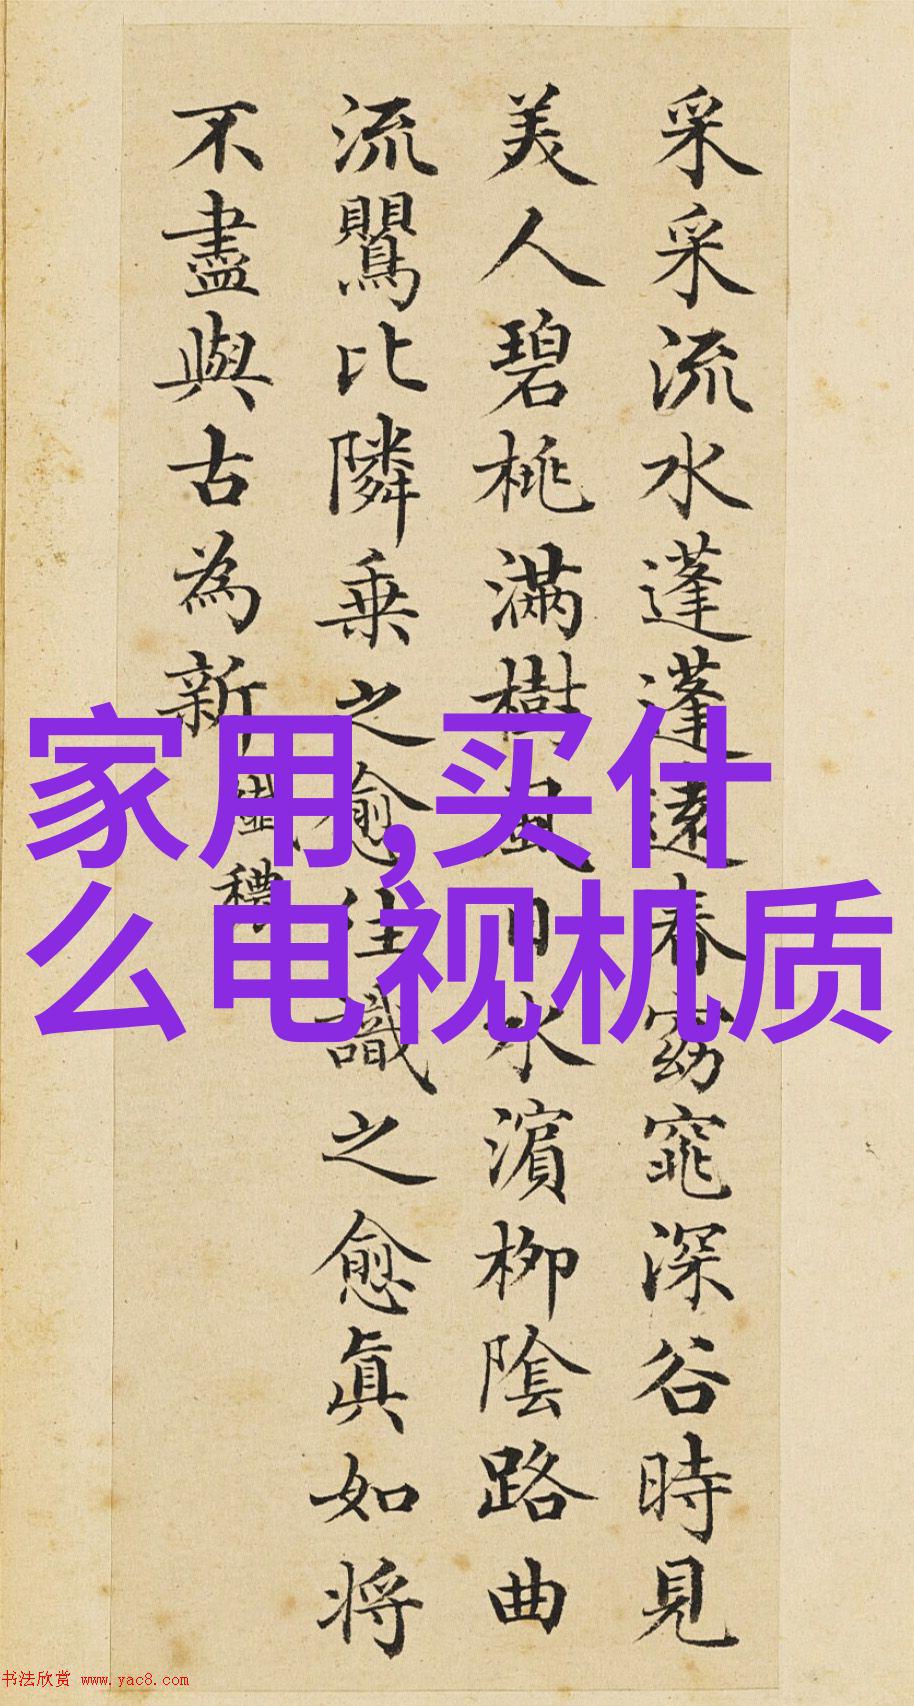 采采流水蓬蓬遠春窈窕深谷時見
美人碧桃滿樹風日水濱柳陰路曲
流鶯比隣乗之愈往識之愈真如将
不盡與古為新 纖穠
家用,买什
么电视机质
书法欣赏 www.yac8.com